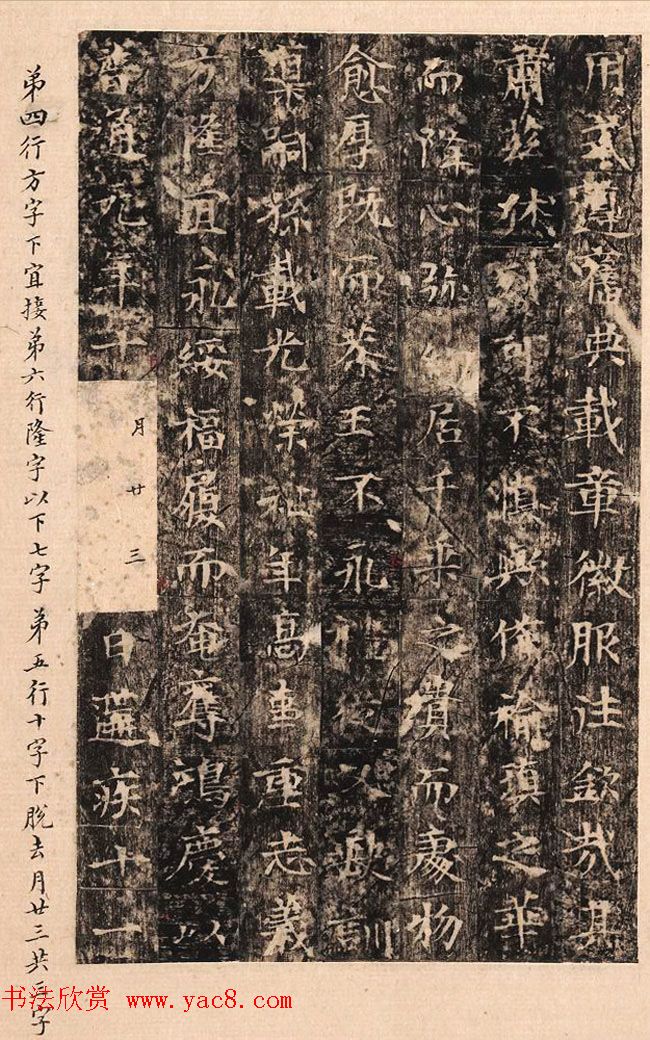 用式遵舊典載章徽服往欽哉其
肅茲休可不慎歟倏褕瓆之華
而降心弥居千乘之貴而處物
愈厚既而恭王不永又歔訓
藐嗣孫載光榮祉年高事重志義
方隆宜永綏福履而奄奪鴻慶以
普通元年十
月廿三
日遘疾十一
弟四行方字下宜接弟六行隆字以下七字弟五行十字下脫去月廿三共三字
书法欣赏 www.yac8.com